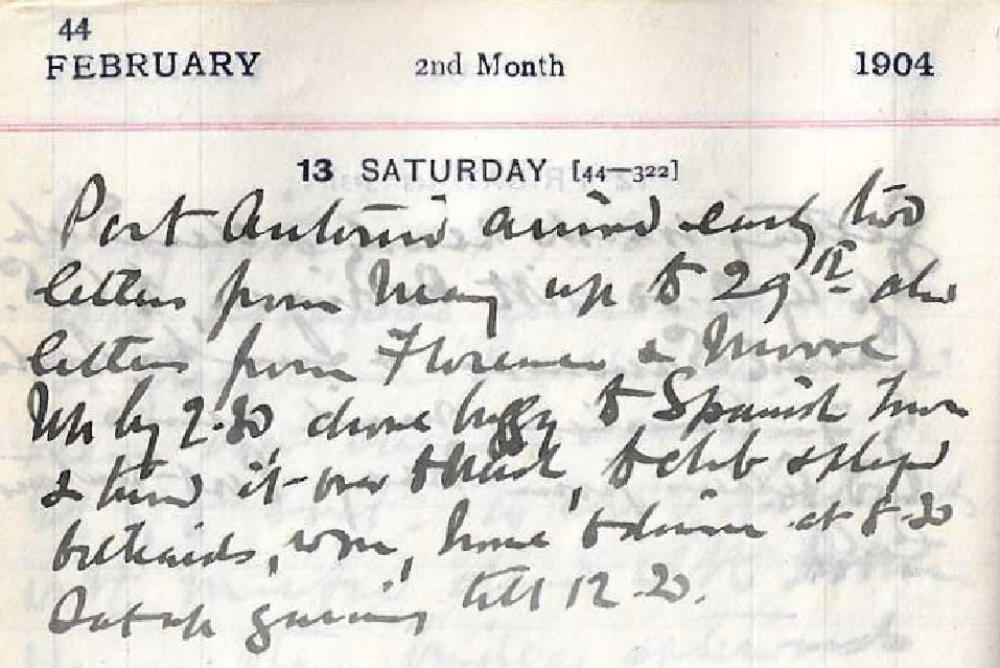 44
FEBRUARY 2nd Month 1904
13 SATURDAY [44—322]
Port Antonio arrived early, two
letters from May up to 29th also
letters from Florence & Moore
Up by 2.30, drove buggy to Spanish Town
& turned it over to, to club & played
billiards, won, home to dinner at 8.30
Sat up till 12.20.